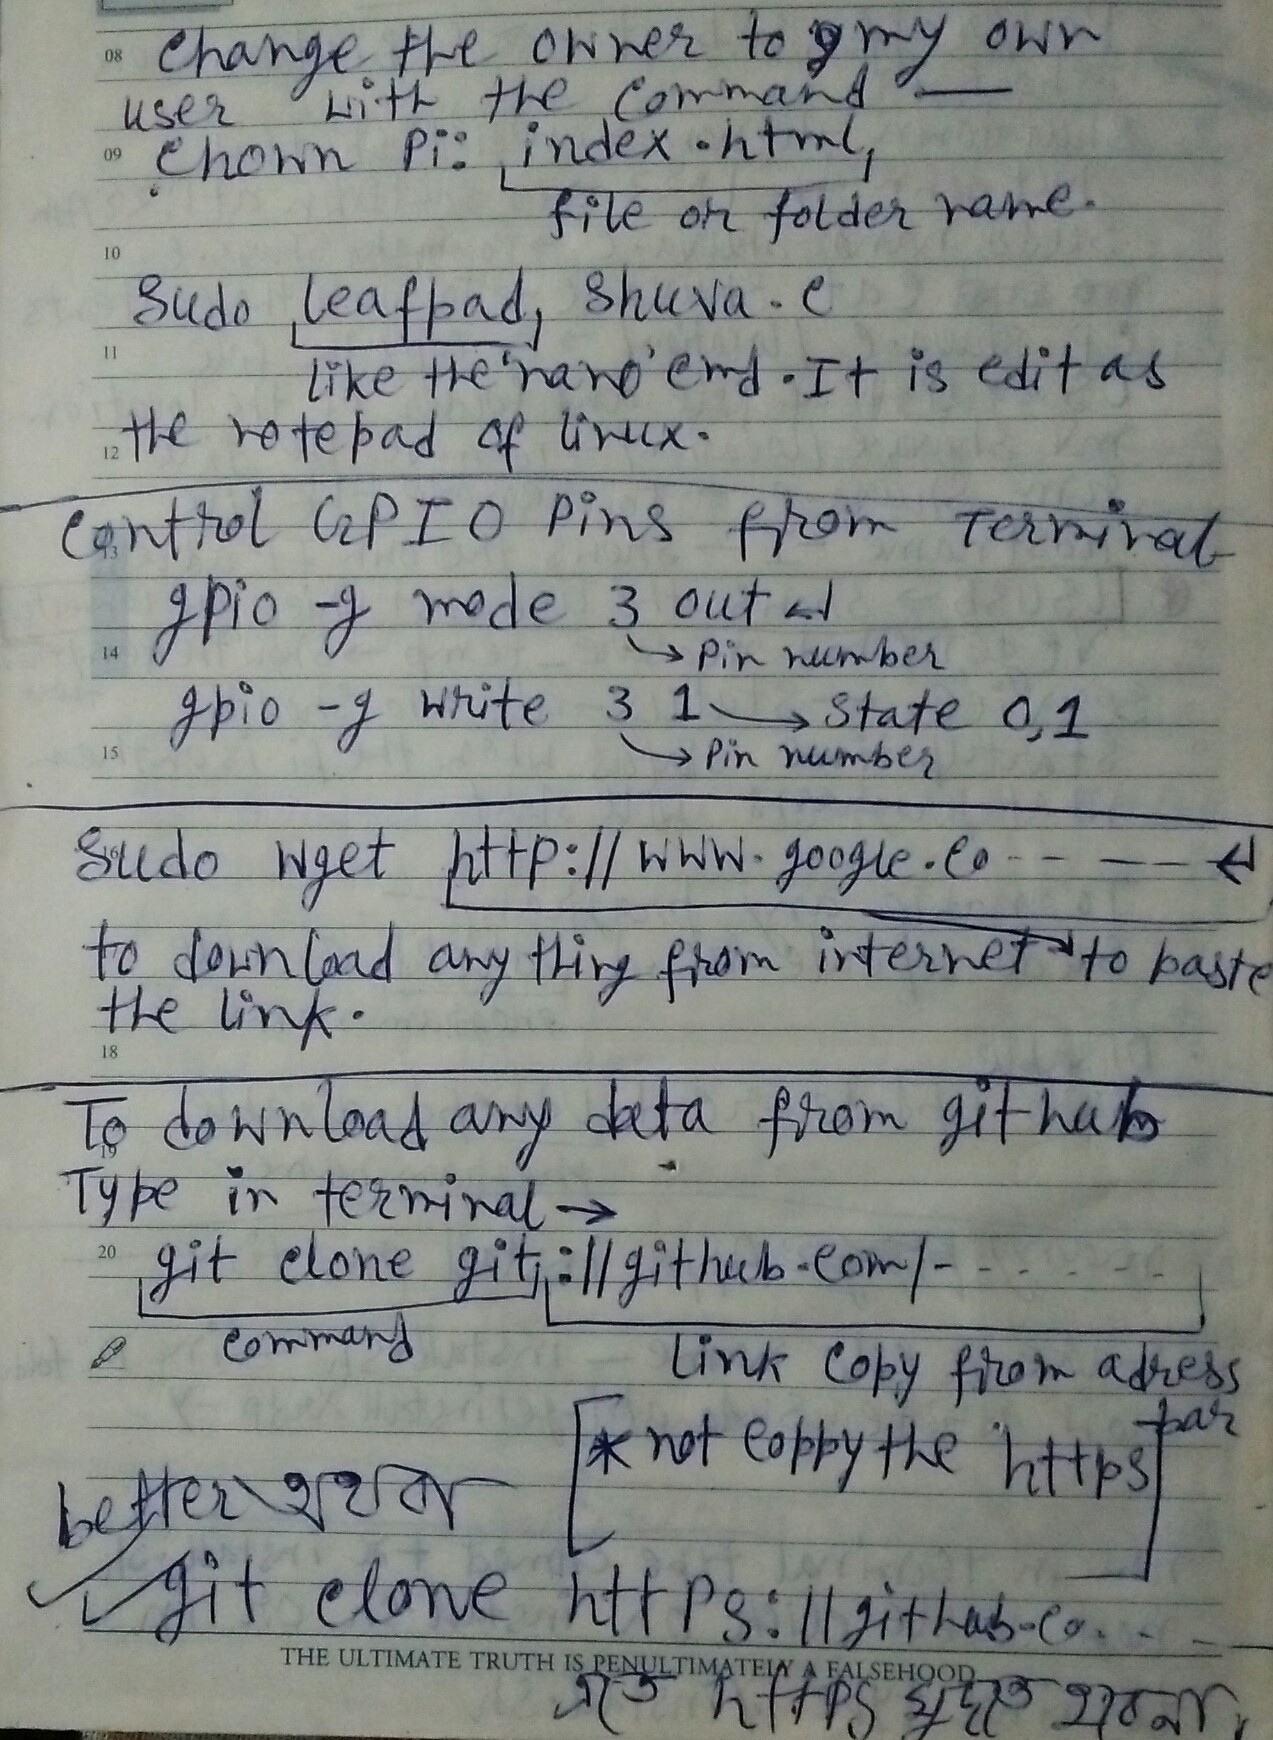 08 Change the owner to my own
user with the command —
09 Chown Pi: index.html,
file or folder name.
10
Sudo leafpad, Shuva.c
11
like the 'nano' cmd. It is edit as
the notepad of linux.
12
Control GPIO Pins from Terminal
13
gpio -g mode 3 out ↵
14 → Pin number
gpio -g write 3 1 → State 0,1
15 → Pin number
Sudo wget http://www.google.co-- — —— ↵
to download any thing from internet → to paste
the link.
18
To download any data from github
19
Type in terminal →
20 git clone git://github.com/- - - - - -
command
link copy from adress
bar
[* not coppy the https]
better
git clone https://github.co. - -
THE ULTIMATE TRUTH IS PENULTIMATELY A FALSEHOOD
https